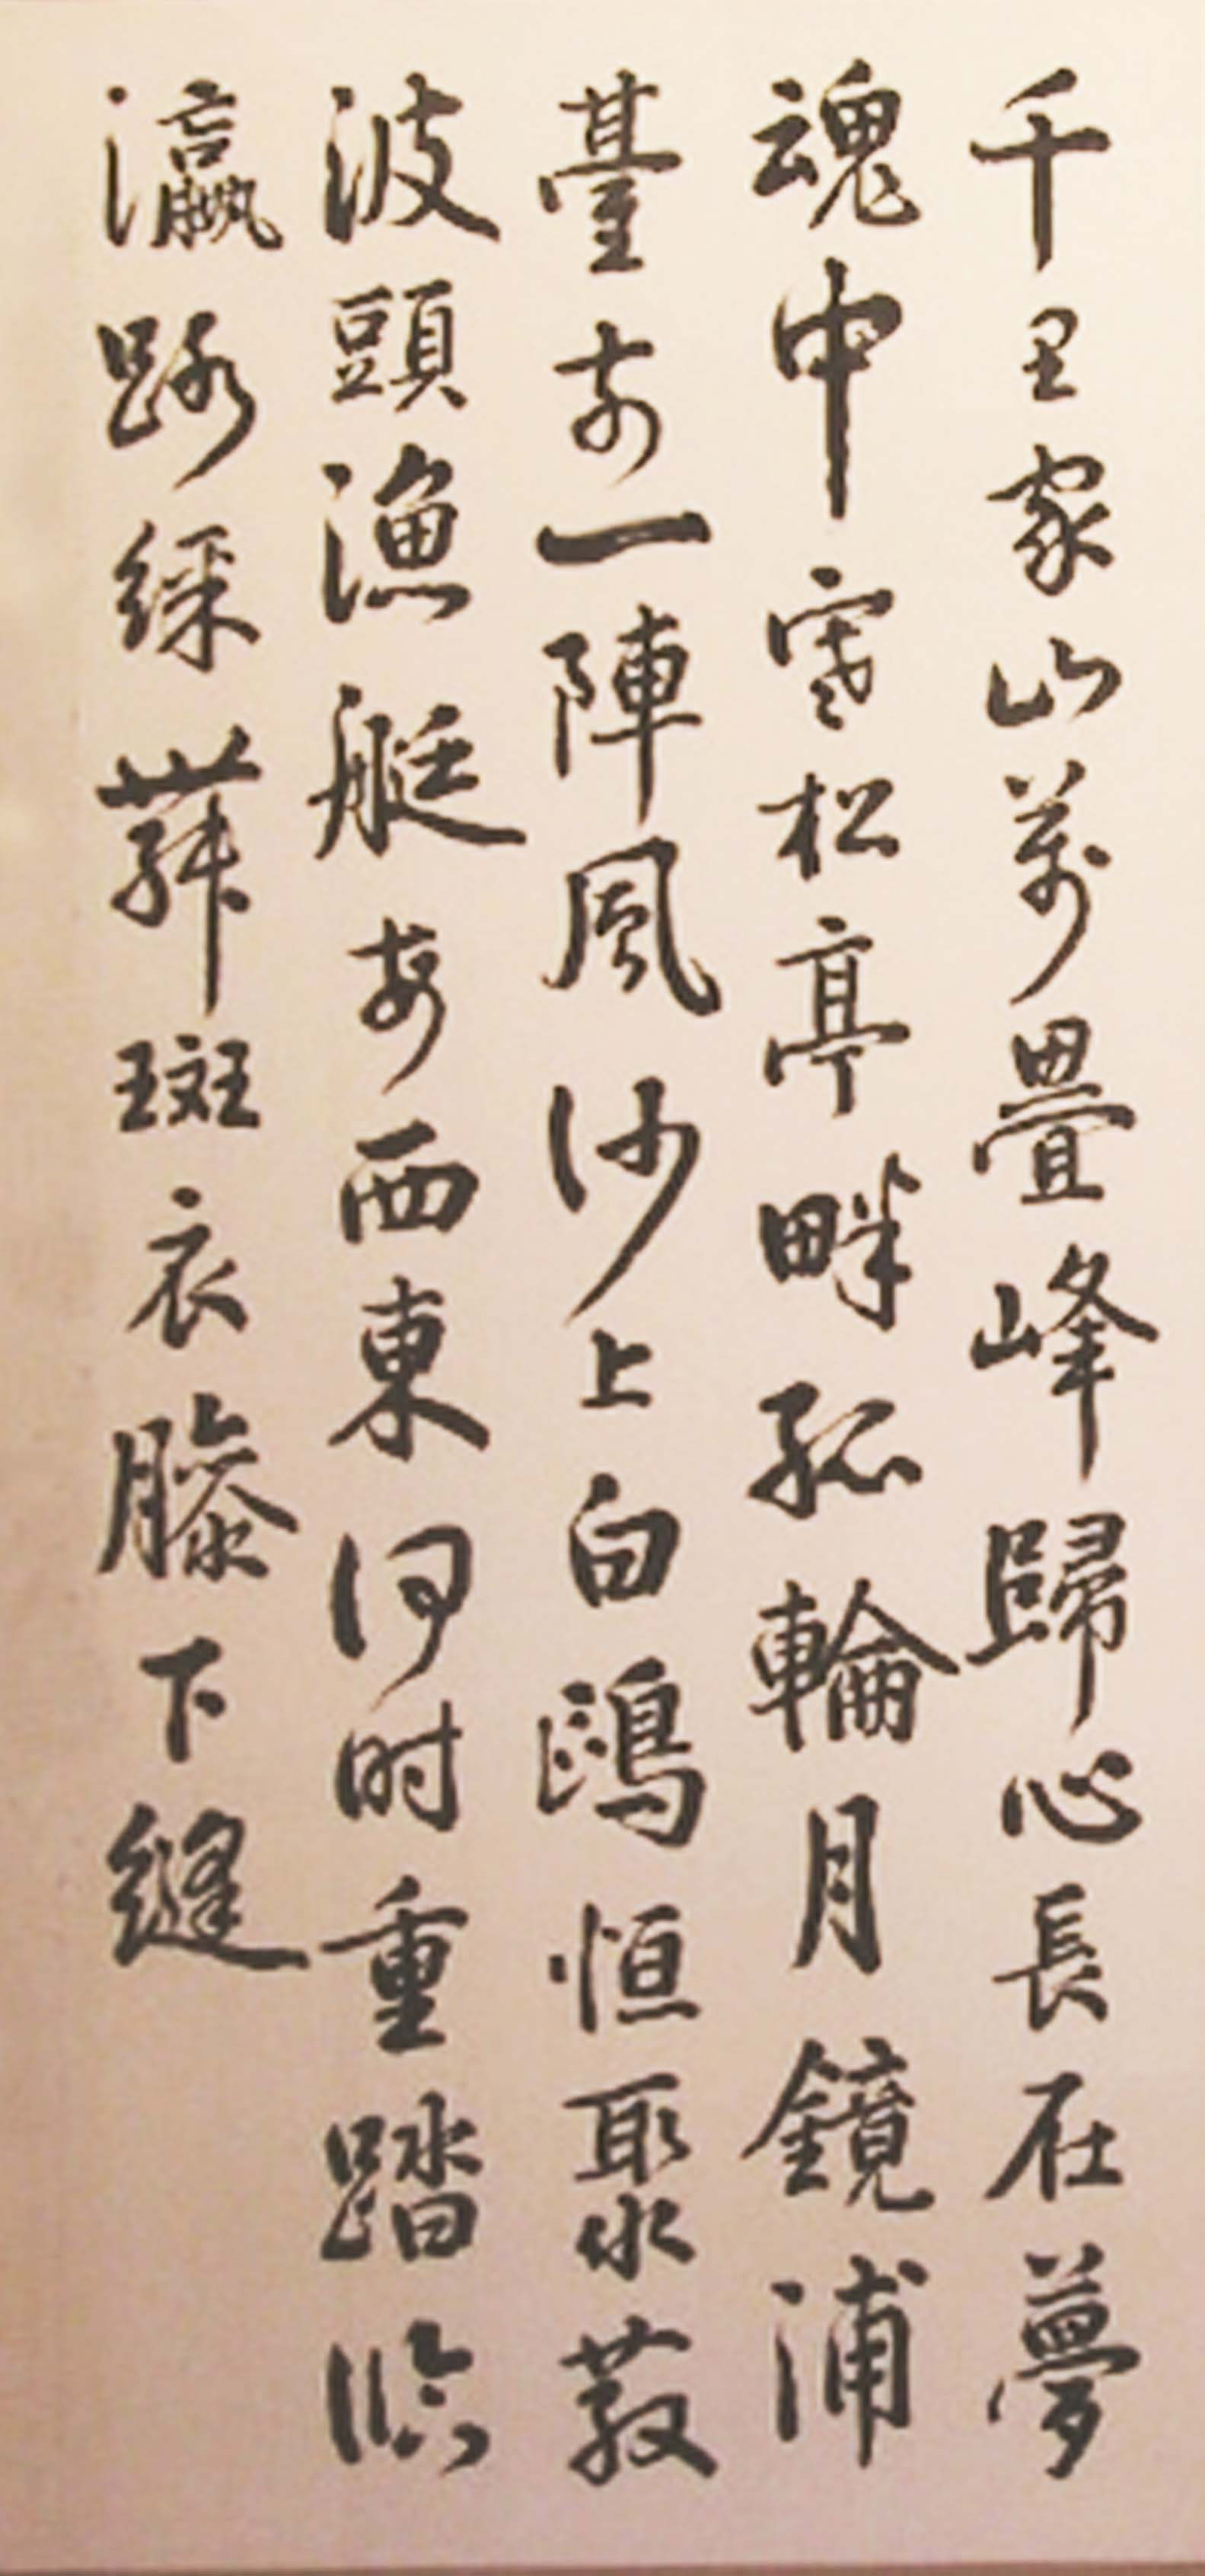 千里家山萬疊峰歸心長在夢
魂中寒松亭畔孤輪月鏡浦
臺前一陣風沙上白鷗恒聚散
波頭漁艇每西東何时重踏臨
瀛路綵舞斑衣膝下縫